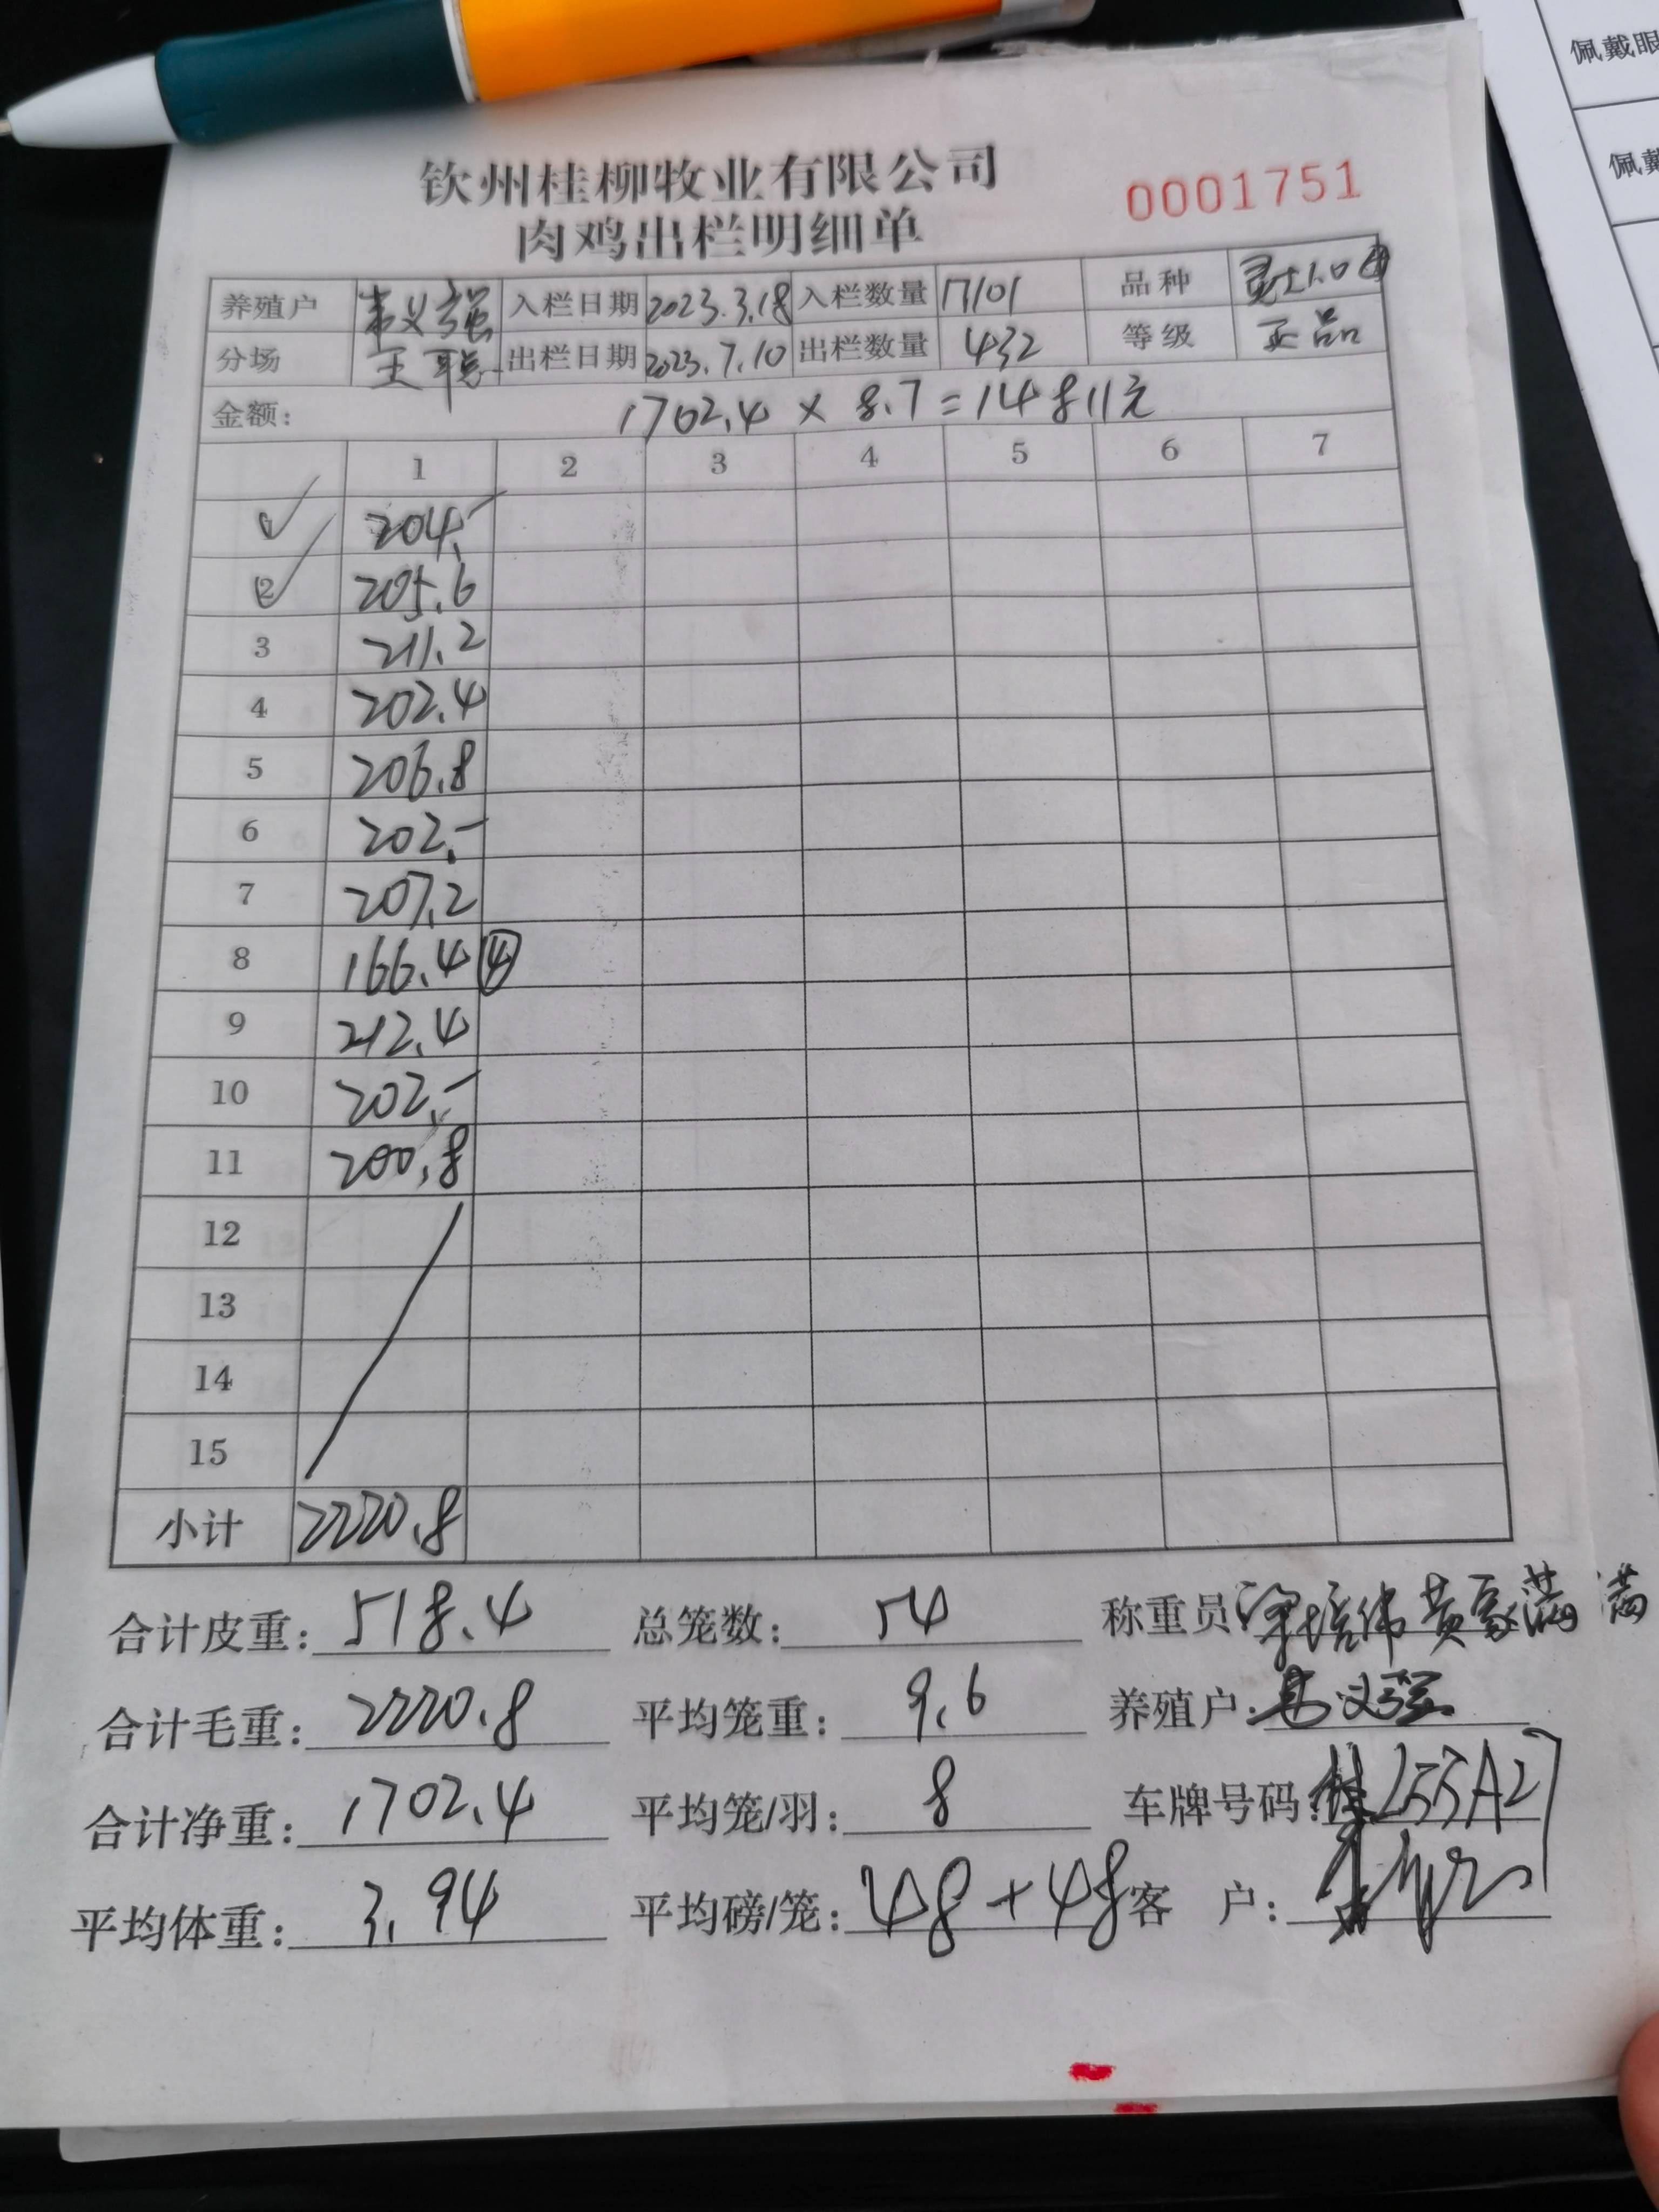 佩戴眼
佩戴
钦州桂柳牧业有限公司
肉鸡出栏明细单
0001751
养殖户 韦义强 入栏日期 2023.3.18 入栏数量 17101 品种
分场 王聪 出栏日期 2023.7.10 出栏数量 432 等级 正品
金额: 1702.4 × 8.7 = 14811元
1 2 3 4 5 6 7
1 204.-
2 205.6
3 211.2
4 202.4
5 206.8
6 202.-
7 207.2
8 166.4 ④
9 212.4
10 202.-
11 200.8
12
13
14
15
小计 2220.8
合计皮重: 518.4 总笼数: 54 称重员
合计毛重: 2220.8 平均笼重: 9.6 养殖户: 韦义强
合计净重: 1702.4 平均笼/羽: 8 车牌号码:
平均体重: 3.94 平均磅/笼: 48+48 客 户: